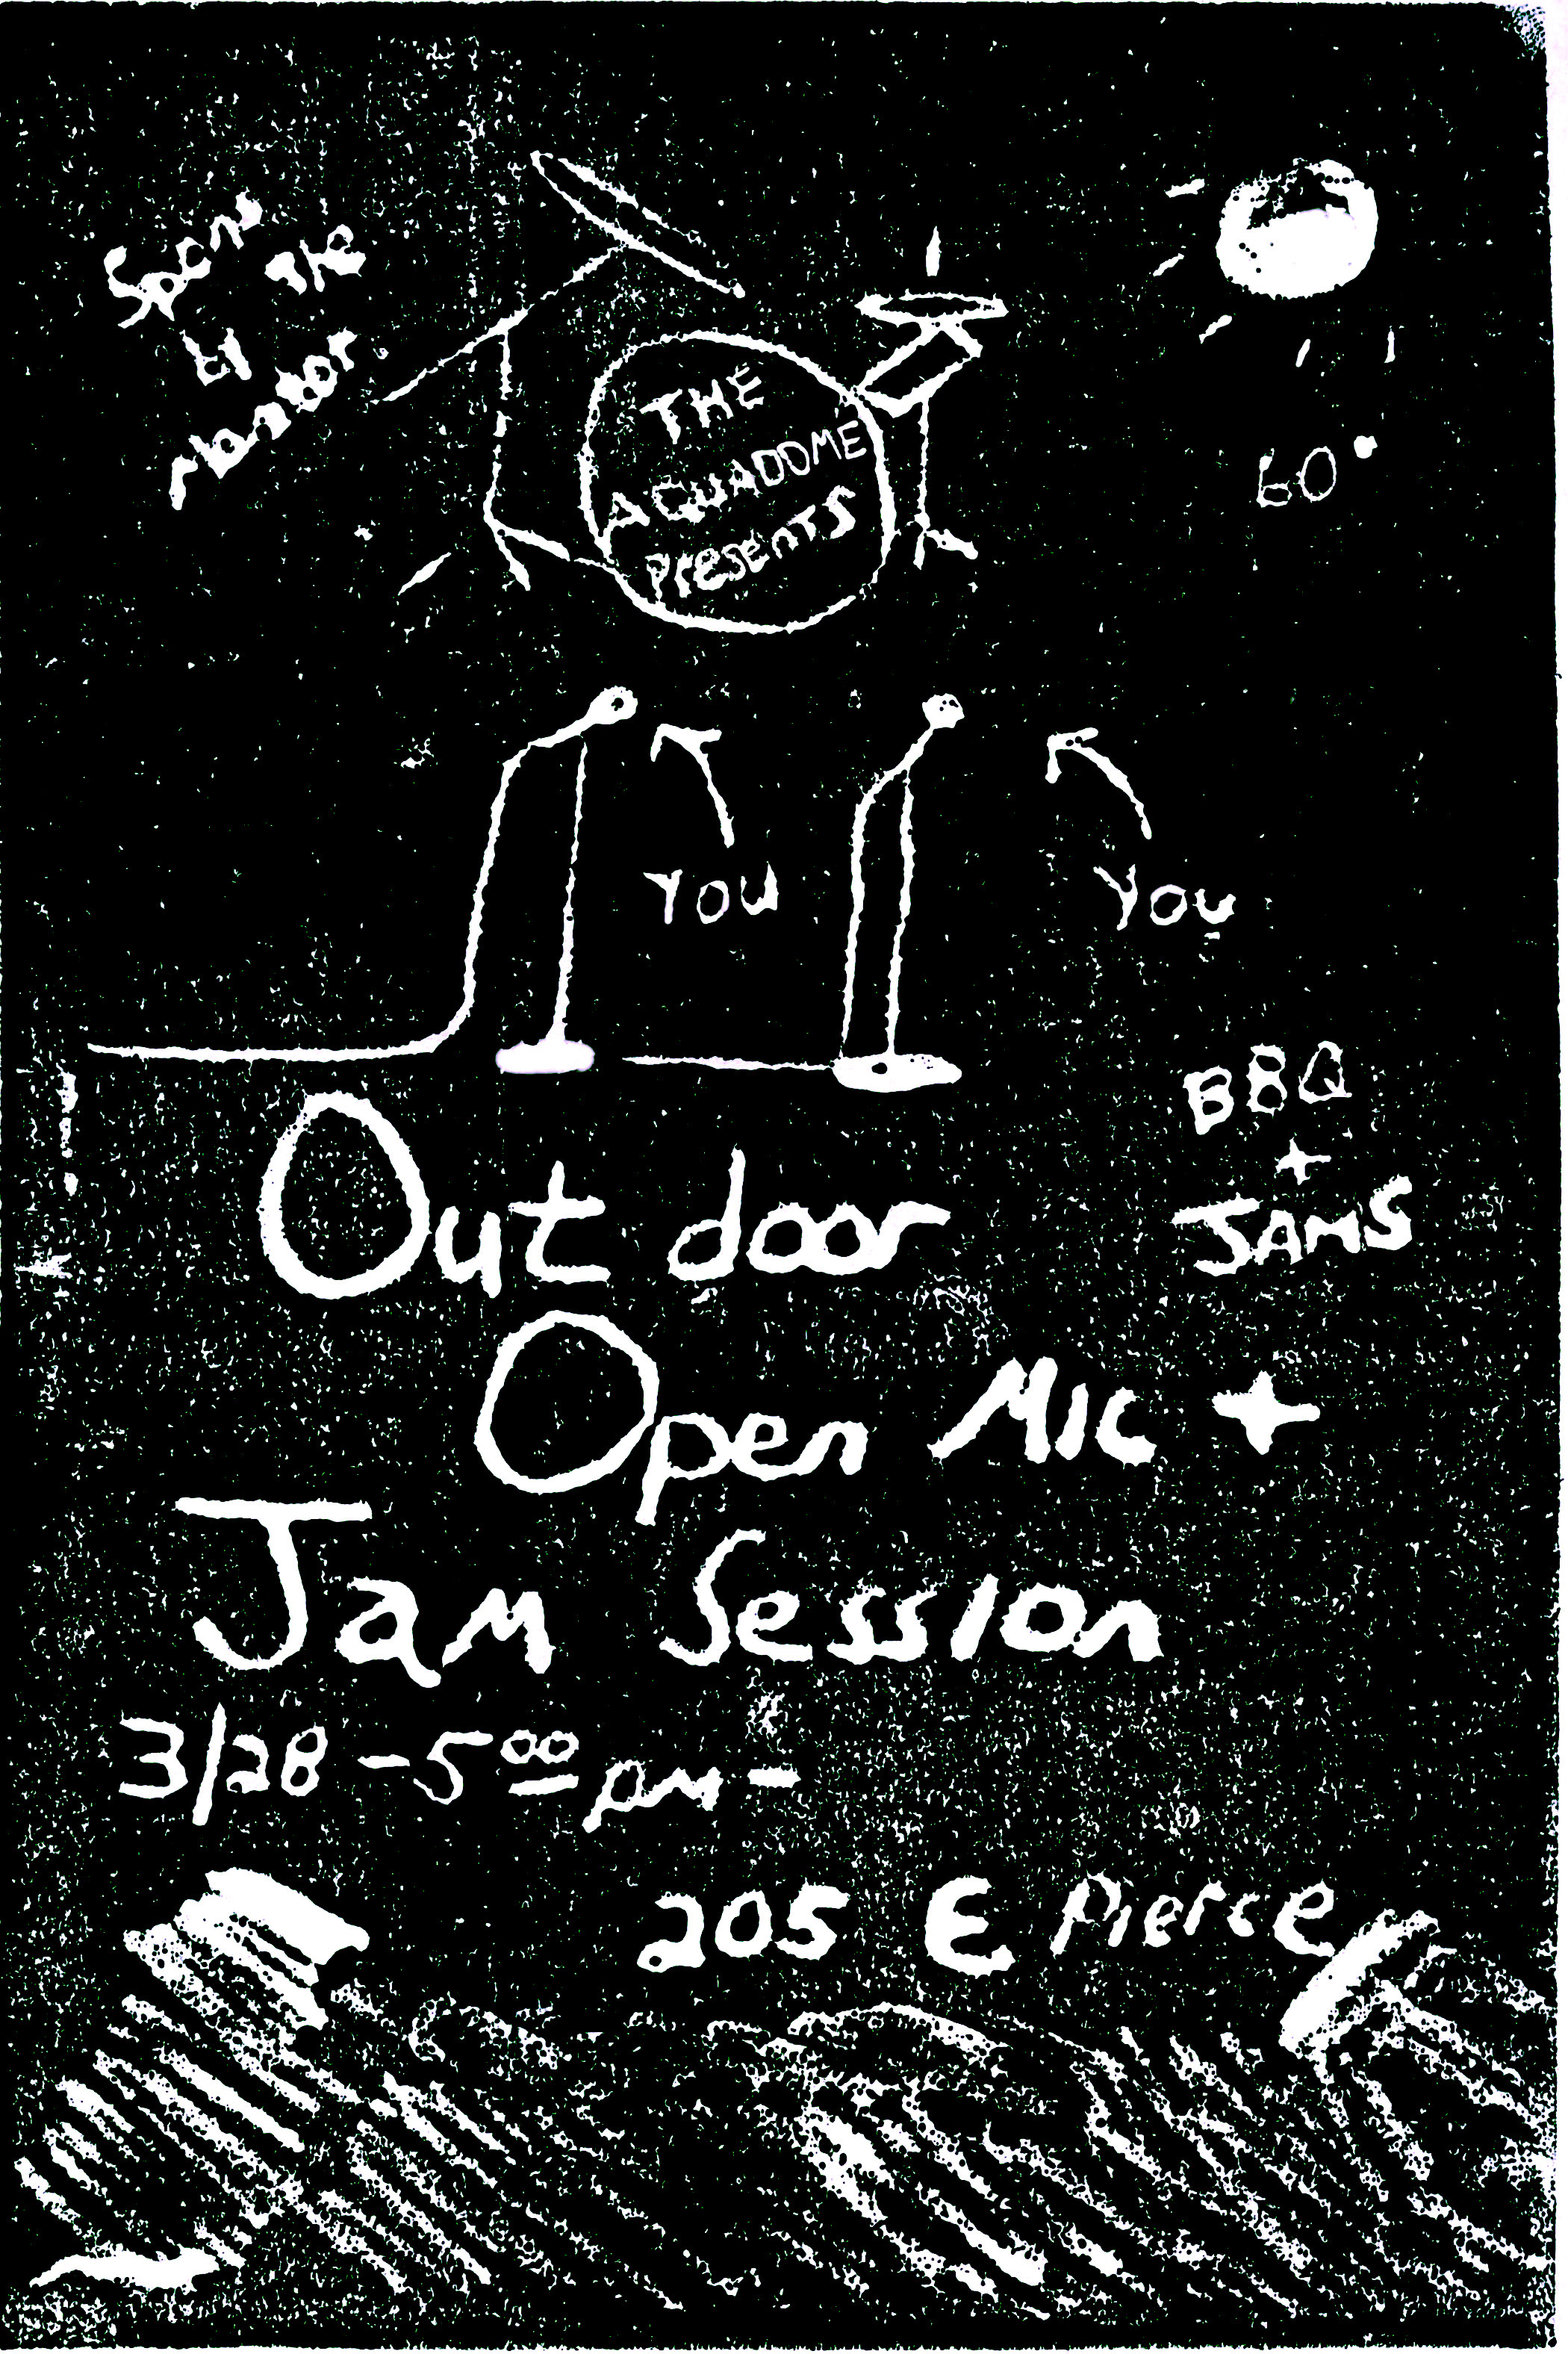 by the
THE
AQUADOME
Presents
60°
YOU
YOU
BBQ
+
JAMS
Out door
Open Mic +
Jam Session
3/28 - 5⁰⁰ pm -
205 E Pierce